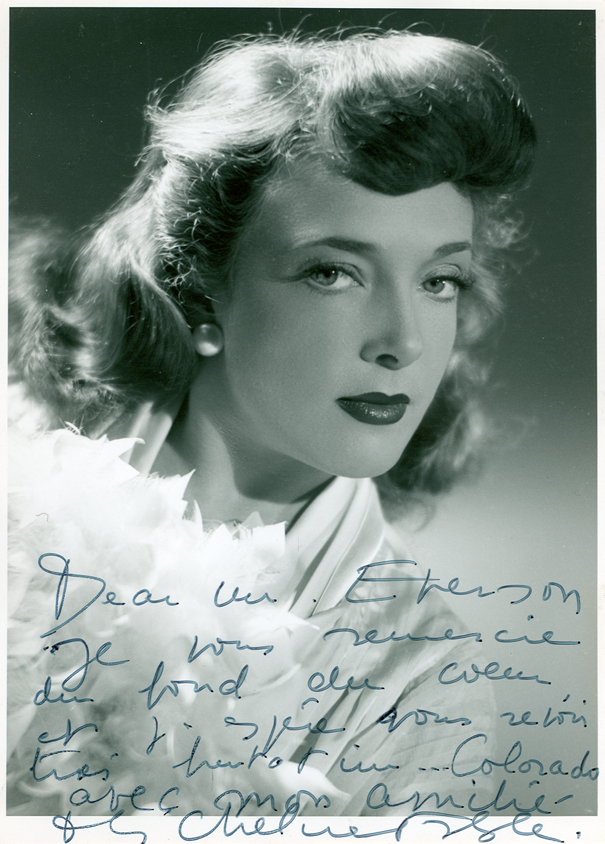 Dear mr. Everson
je vous remercie
du fond du coeur
et j'espère vous revoir
très bientot in... Colorado
avec mon amitié
Micheline Presle.